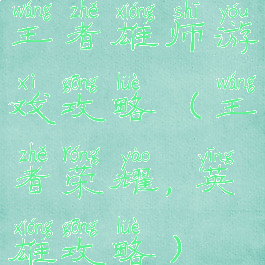 wáng zhě xióng shī yóu
王者雄师游
xì gōng lüè wáng
戏攻略（王
zhě róng yào yīng
者荣耀，英
xióng gōng lüè
雄攻略）